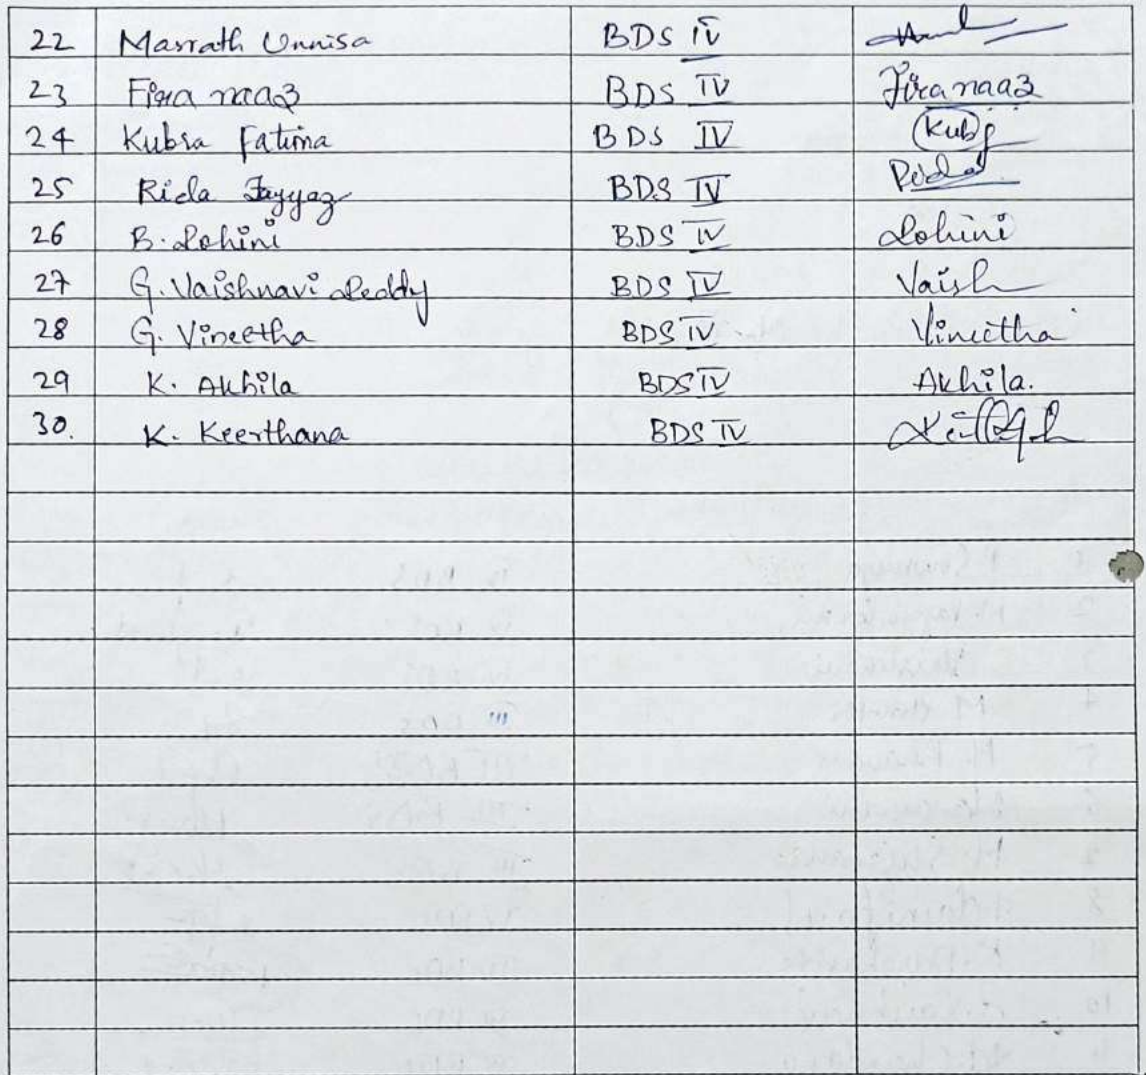 22 Masrath Unnisa BDS IV
23 Firanaaz BDS IV Firanaaz
24 Kubra Fatima BDS IV Kub
25 Rida Fayyaz BDS IV Rida
26 B. Rohini BDS IV Rohini
27 G. Vaishnavi Reddy BDS IV Vaish
28 G. Vineetha BDS IV Vineetha
29 K. Akhila BDS IV Akhila.
30. K. Keerthana BDS IV